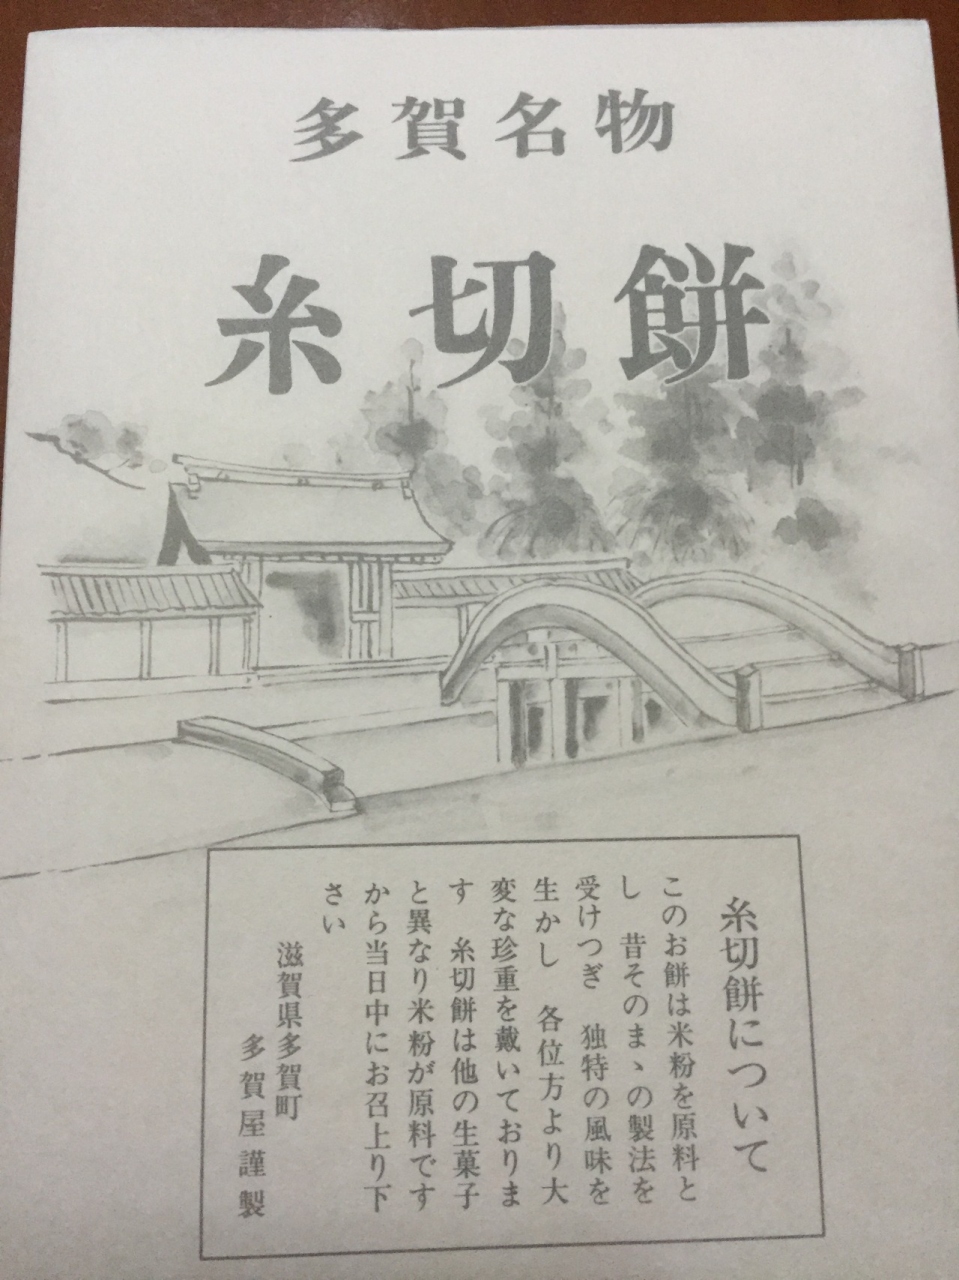 多賀名物
糸切餅
糸切餅について
このお餅は米粉を原料と
し　昔そのまゝの製法を
受けつぎ　独特の風味を
生かし　各位方より大
変な珍重を戴いておりま
す　糸切餅は他の生菓子
と異なり米粉が原料です
から当日中にお召上り下
さい
滋賀県多賀町
多賀屋謹製